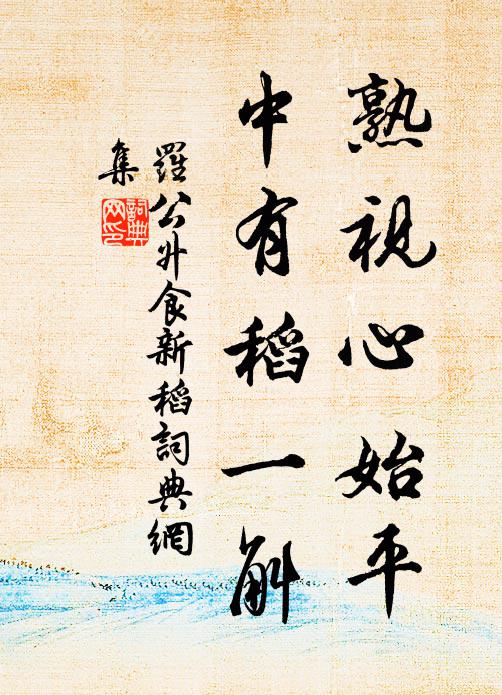 熟視心始平
中有稻一斛
羅公升食新稻詞典網
集
詞典
网印